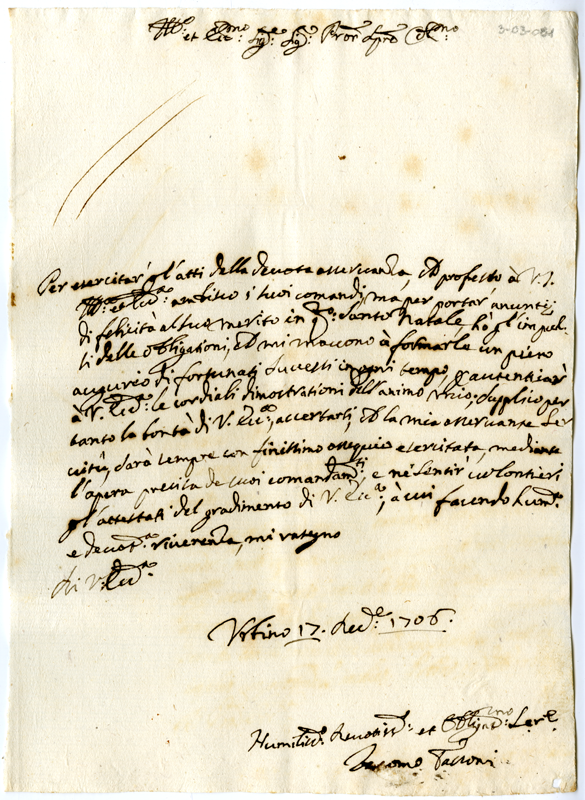 Ill.mo et Ecc.mo Sig.e Sig.e Pron Col.mo
3-03-081
Per esercitar' gl'atti della devota osservanza, ch' professo à V. S.
Ill.ma et Ecc.ma ambisco i suoi comandi, mà per portar' anuntij
di felicità al suo merito in q.to Santo Natale hò gl'impul-
si delle obligationi, ch' mi muovono à formarle un pieno
augurio di fortunati successi in ogni tempo, autenticar'
à V. Ecc.za le cordiali dimostrationi dell'animo mio; supplico per
tanto la bontà di V. Ecc.za, accertarsi, ch' la mia osservante Ser
vitù, sarà sempre con finissimo ossequio esercitata, mediante
l'opera precisa de suoi comandam.ti, e nè sentir' volontieri
gl'attestati del gradimento di V. Ecc.za, à cui facendo hum.a
e devot.ma riverenza, mi rassegno
di V. Ecc.za
Urbino 17. Dec.e 1706.
Humiliss.o Devotiss.o et Obligat.mo Ser.e
Giacomo